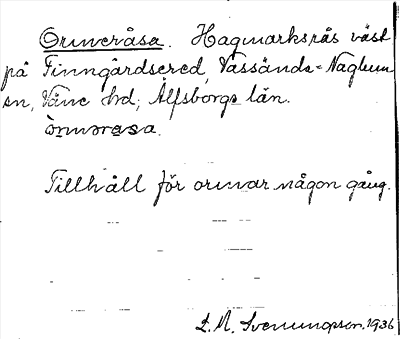 Ormeråsa. Hagmarksrås väst
på Finngårdsered, Vassända-Naglum
sn, Väne hd, Älfsborgs län.
ò̱rmərasa.
Tillhåll för ormar någon gång.
L. M. Svenungsson. 1936